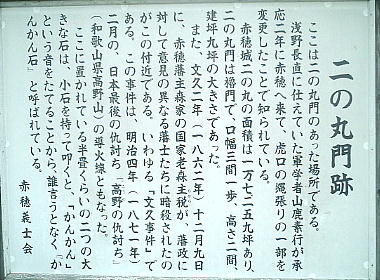 二の丸門跡
ここは二の丸門のあった場所である。
浅野長直に仕えていた軍学者山鹿素行が承
応二年に赤穂へ来て、虎口の縄張りの一部を
変更したことで知られている。
赤穂城二の丸の面積は一万七二五九坪あり、
二の丸門は櫓門で、口幅三間一歩、高さ二間、
建坪九坪の大きさであった。
また、文久二年(一八六二年)十二月九日
に、赤穂藩主森家の国家老森主税が、藩政に
対して意見の異なる藩士たちに暗殺されたの
がこの付近である。いわゆる「文久事件」で
ある。この事件は、明治四年(一八七一年)
二月の、日本最後の仇討ち「高野の仇討ち」
(和歌山県高野山)の導火線ともなった。
ここに置かれている半畳くらいの二つの大
きな石は、小石を持って叩くと、「かんかん」
という音をたてることから、誰言うとなく、「か
んかん石」と呼ばれている。
赤穂義士会